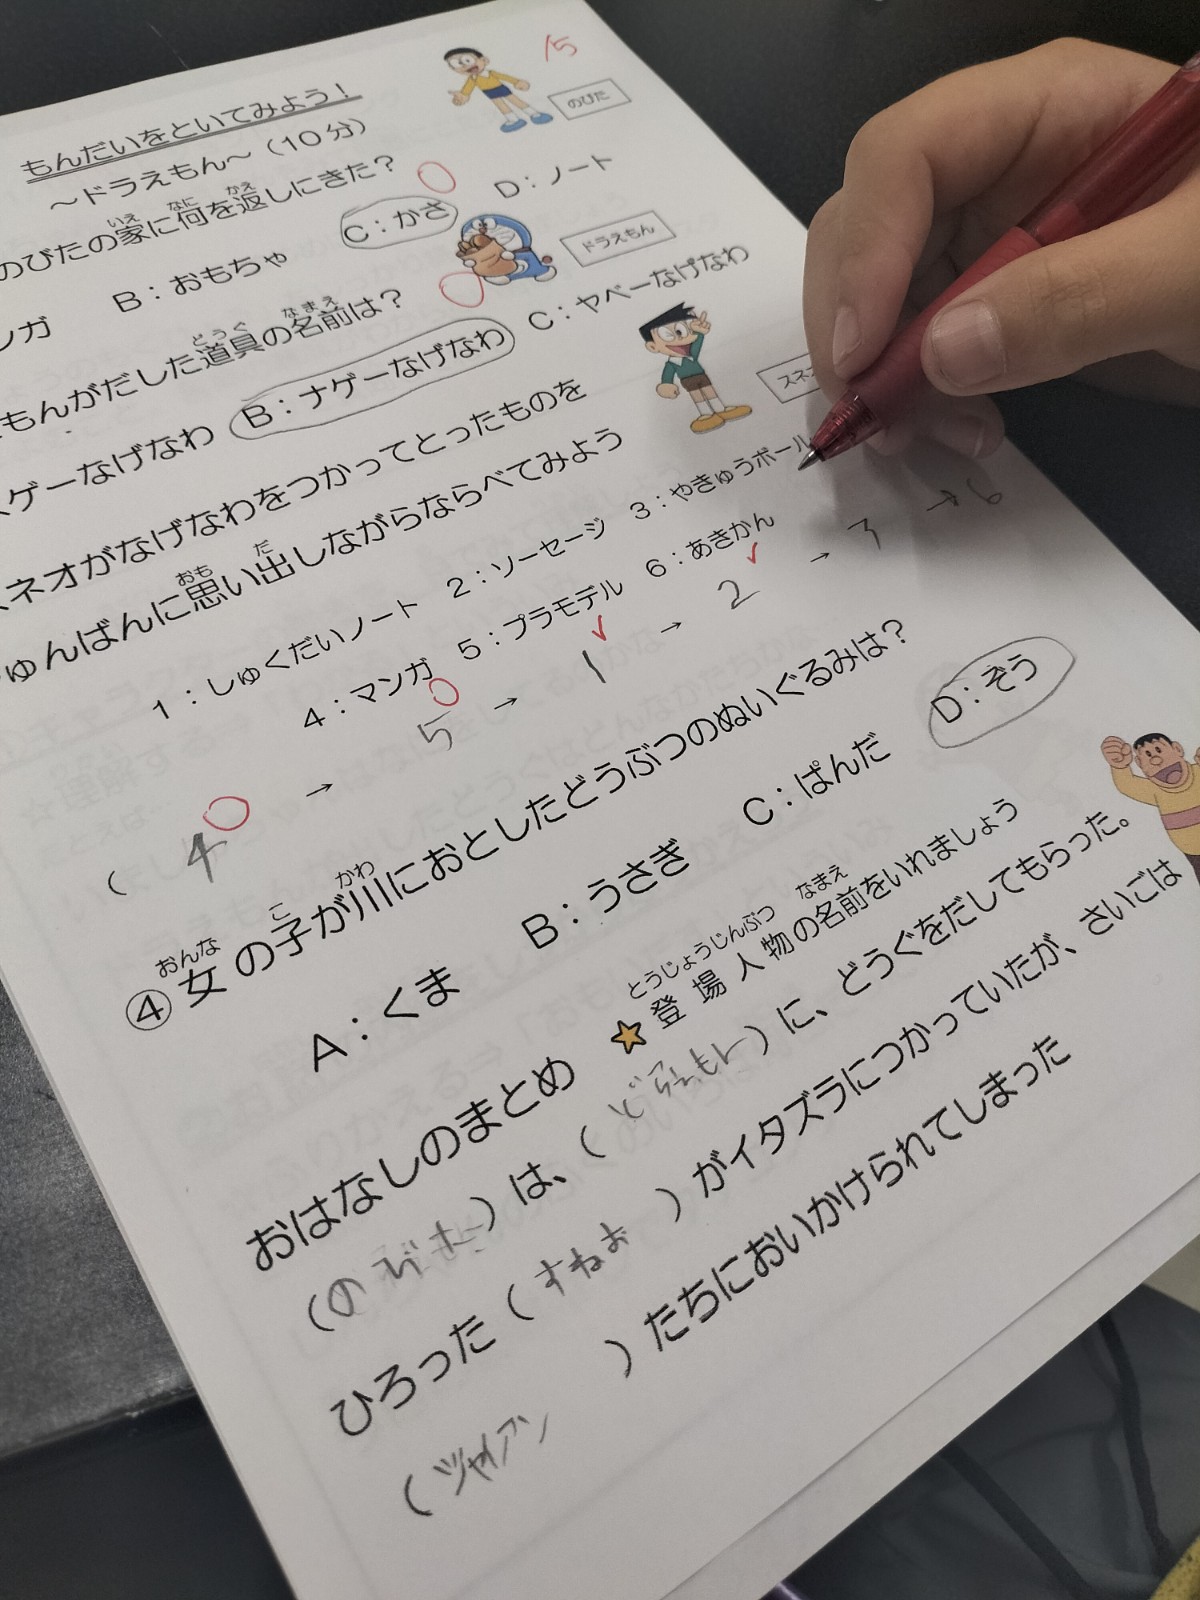 /5
もんだいをといてみよう！
～ドラえもん～（10分）
のびた
のびたの家に何を返しにきた？
いえ なに かえ
ンガ B：おもちゃ C：かさ D：ノート
もんがだした道具の名前は？
どうぐ なまえ
ドラえもん
ゲーなげなわ B：ナゲーなげなわ C：ヤベーなげなわ
ネオがなげなわをつかってとったものを
スネ
ゅんばんに思い出しながらならべてみよう
おも だ
1：しゅくだいノート 2：ソーセージ 3：やきゅうボール
4：マンガ 5：プラモデル 6：あきかん
( 4 → 5 → 1 → 2 → 3 → 6
④女の子が川におとしたどうぶつのぬいぐるみは？
おんな こ かわ
A：くま B：うさぎ C：ぱんだ D：ぞう
おはなしのまとめ ★登場人物の名前をいれましょう
とうじょうじんぶつ なまえ
(のびた)は、(どらえもん)に、どうぐをだしてもらった。
ひろった(すねお)がイタズラにつかっていたが、さいごは
(ジャイアン)たちにおいかけられてしまった